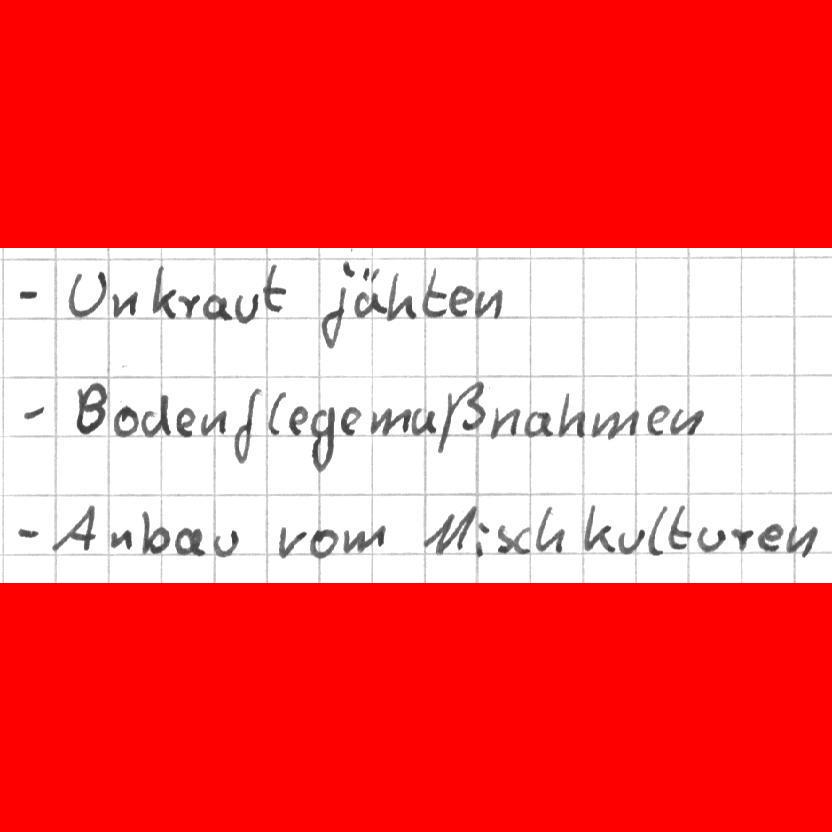 - Unkraut jähten
- Bodenflegemaßnahmen
- Anbau vom Mischkulturen